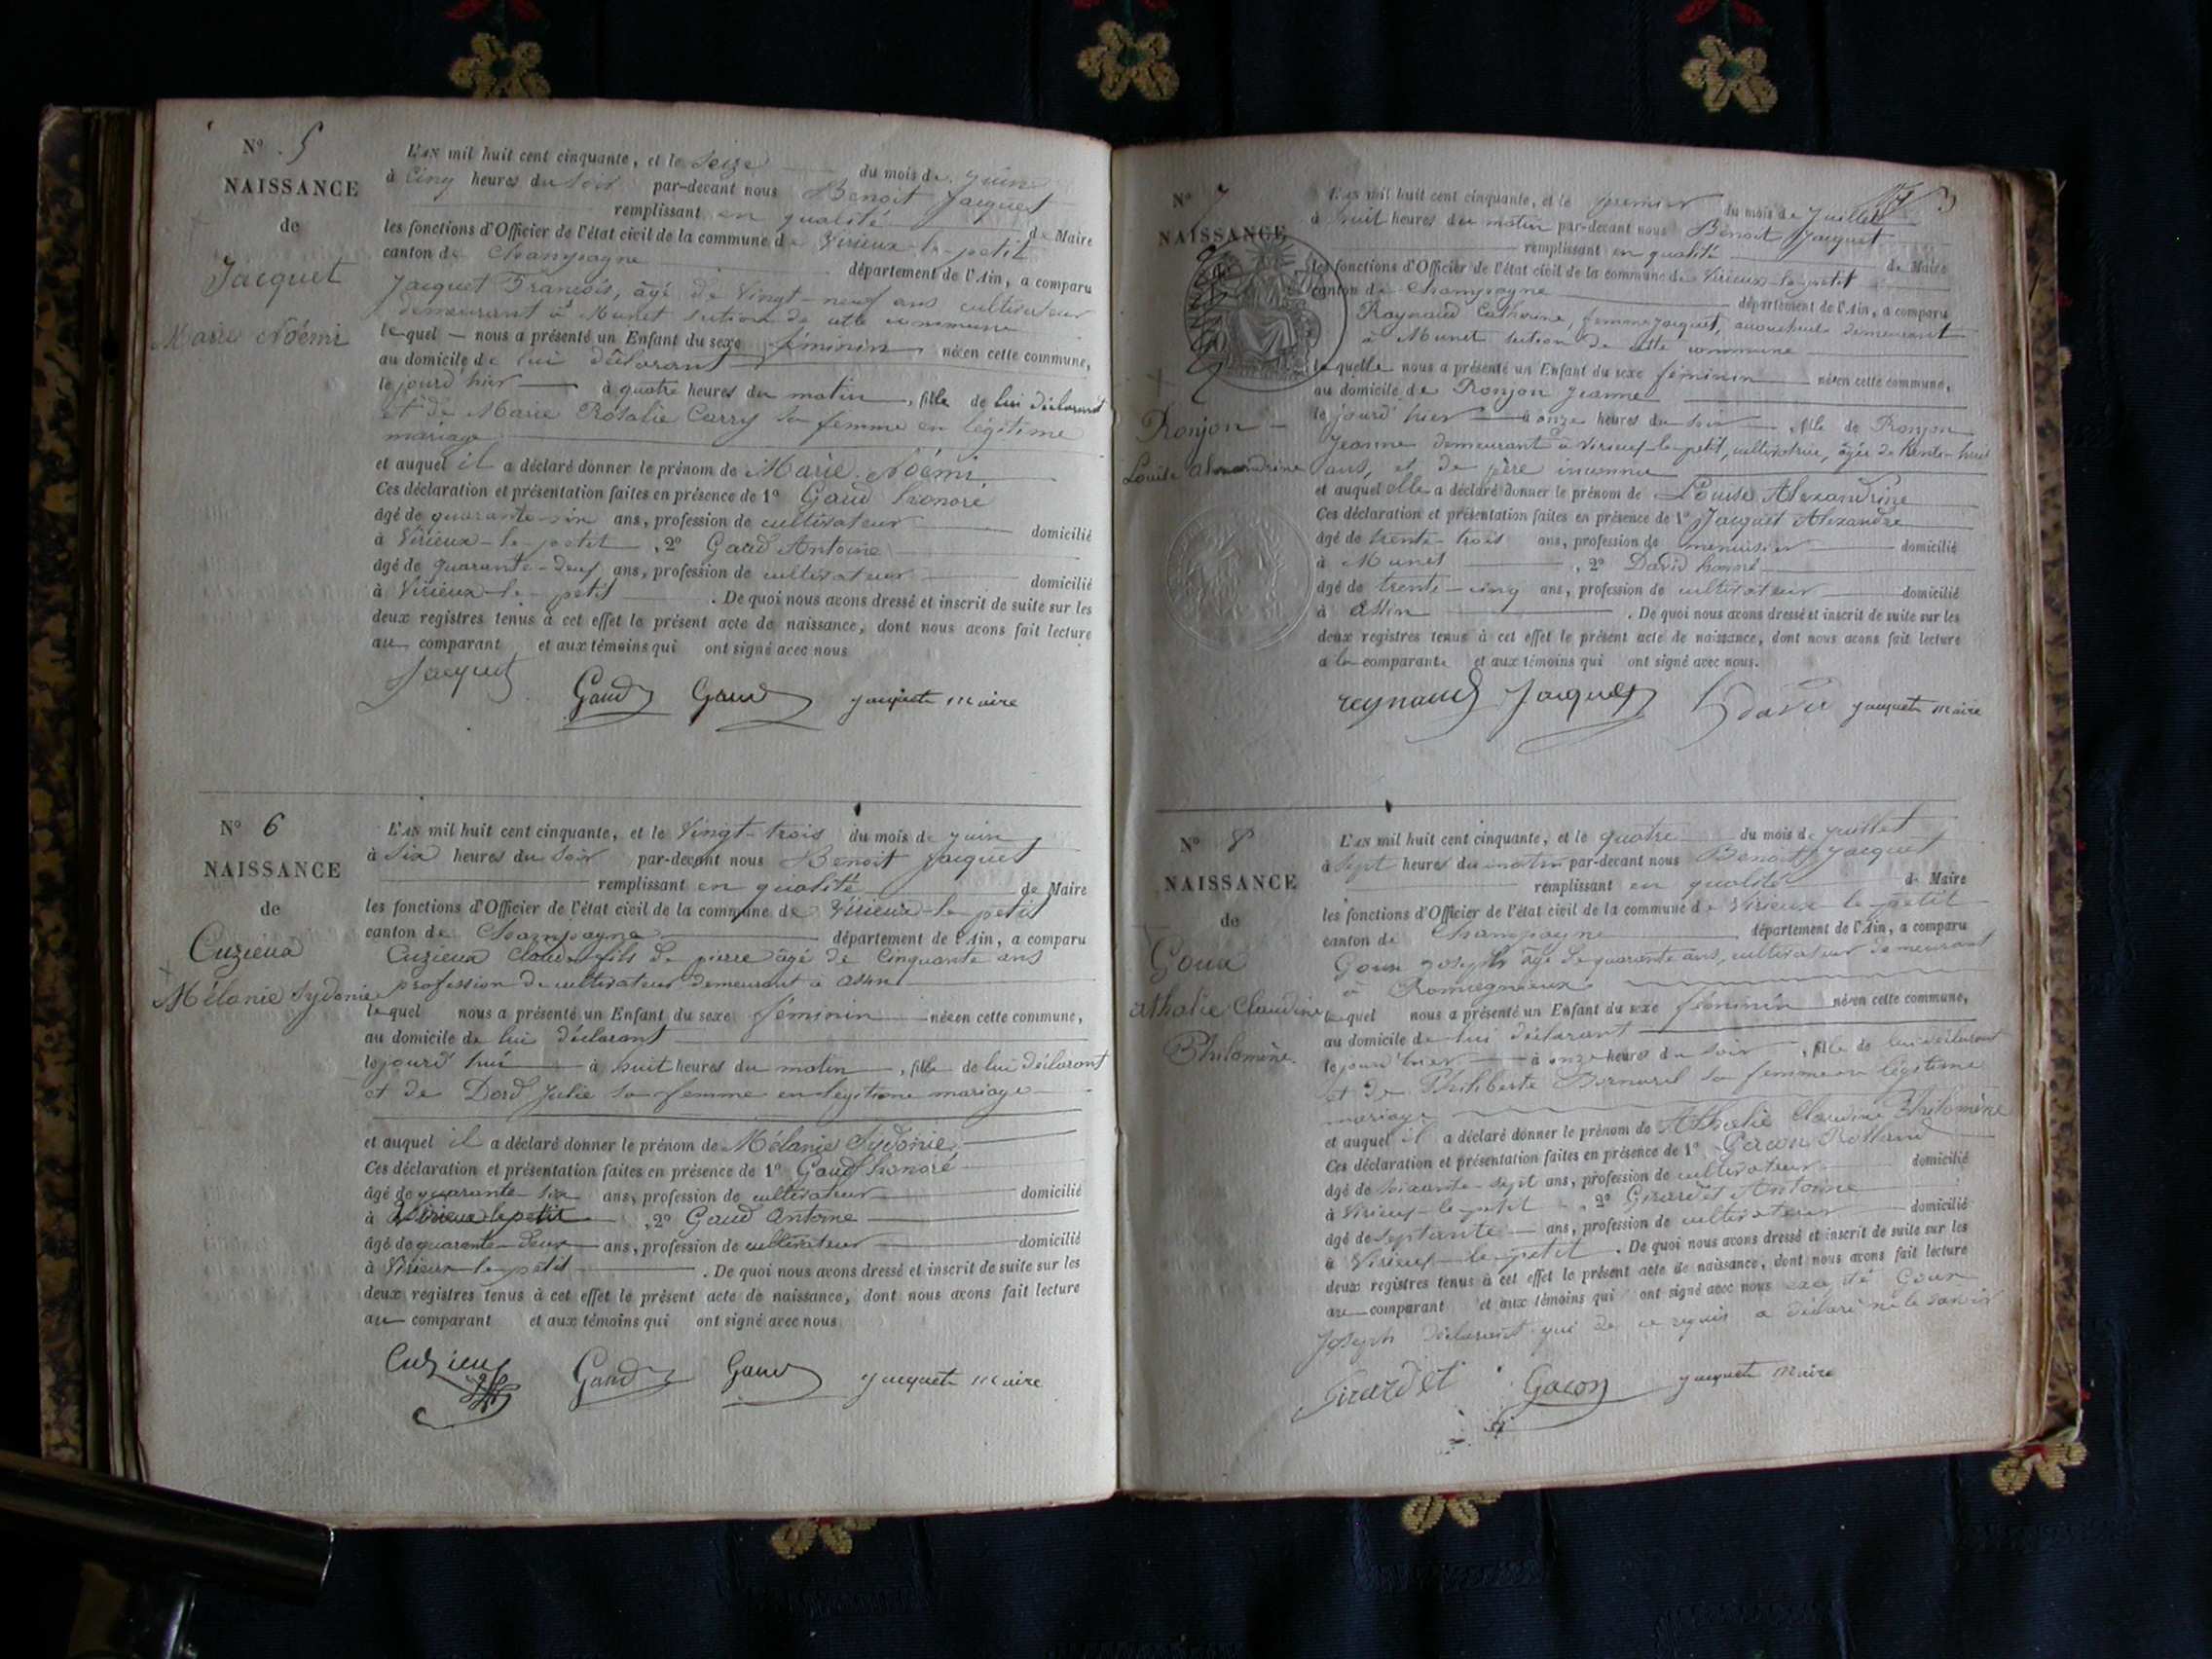 N° 5
NAISSANCE
de
Jacquet
Marie Noémi
L'AN mil huit cent cinquante, et le seize du mois de juin
à cinq heures du soir par-devant nous Benoit Jacquet
remplissant en qualité de Maire
les fonctions d'Officier de l'état civil de la commune de Virieux-le-petit
canton de Champagne département de l'Ain, a comparu
Jacquet François, âgé de vingt-neuf ans cultivateur
demeurant à Munet section de cette commune
lequel nous a présenté un Enfant du sexe féminin née en cette commune,
au domicile de lui déclarant
le jourd'hier à quatre heures du matin, fille de lui déclarant
et de Marie Rosalie Carry sa femme en légitime
mariage
et auquel il a déclaré donner le prénom de Marie Noémi
Ces déclaration et présentation faites en présence de 1° Gaud honoré
âgé de quarante-six ans, profession de cultivateur domicilié
à Virieux-le-petit, 2° Gaud Antoine
âgé de quarante-deux ans, profession de cultivateur domicilié
à Virieux-le-petit. De quoi nous avons dressé et inscrit de suite sur les
deux registres tenus à cet effet le présent acte de naissance, dont nous avons fait lecture
au comparant et aux témoins qui ont signé avec nous
Jacquet Gaud Gaud Jacquet maire
N° 6
NAISSANCE
de
Cuzieux
Mélanie Sydonie
L'AN mil huit cent cinquante, et le vingt-trois du mois de juin
à six heures du soir par-devant nous Benoit Jacquet
remplissant en qualité de Maire
les fonctions d'Officier de l'état civil de la commune de Virieux-le-petit
canton de Champagne département de l'Ain, a comparu
Cuzieux Claude fils de pierre âgé de cinquante ans
profession de cultivateur demeurant à assin
lequel nous a présenté un Enfant du sexe féminin née en cette commune,
au domicile de lui déclarant
lejourd'hui à huit heures du matin, fille de lui déclarant
et de Dord Julie sa femme en légitime mariage
et auquel il a déclaré donner le prénom de Mélanie Sydonie
Ces déclaration et présentation faites en présence de 1° Gaud honoré
âgé de quarante six ans, profession de cultivateur domicilié
à Virieux-le-petit, 2° Gaud antoine
âgé de quarante-deux ans, profession de cultivateur domicilié
à Virieux-le-petit. De quoi nous avons dressé et inscrit de suite sur les
deux registres tenus à cet effet le présent acte de naissance, dont nous avons fait lecture
au comparant et aux témoins qui ont signé avec nous
Cuzieux Gaud Gaud Jacquet maire
N° 7
NAISSANCE
Ronjon
Louise alexandrine
L'AN mil huit cent cinquante, et le premier du mois de Juillet
à huit heures du matin par-devant nous Benoit Jacquet
remplissant en qualité de Maire
les fonctions d'Officier de l'état civil de la commune de Virieux-le-petit
canton de Champagne département de l'Ain, a comparu
Raynaud Catherine, femme Jacquet, accoucheuse demeurant
à Munet section de cette commune
laquelle nous a présenté un Enfant du sexe féminin née en cette commune,
au domicile de Ronjon Jeanne
le jourd'hier à onze heures du soir, fille de Ronjon
Jeanne demeurant à Virieux-le-petit, cultivatrice, âgée de trente-huit
ans, et de père inconnu
et auquel elle a déclaré donner le prénom de Louise Alexandrine
Ces déclaration et présentation faites en présence de 1° Jacquet Alexandre
âgé de trente-trois ans, profession de menuisier domicilié
à Munet, 2° David honoré
âgé de trente-cinq ans, profession de cultivateur domicilié
à assin. De quoi nous avons dressé et inscrit de suite sur les
deux registres tenus à cet effet le présent acte de naissance, dont nous avons fait lecture
a la comparante et aux témoins qui ont signé avec nous.
reynaud Jacquet david Jacquet maire
N° 8
NAISSANCE
de
Goux
athalie Claudine
Philomène
L'AN mil huit cent cinquante, et le quatre du mois de juillet
à sept heures du matin par-devant nous Benoit Jacquet
remplissant en qualité de Maire
les fonctions d'Officier de l'état civil de la commune de Virieux-le-petit
canton de Champagne département de l'Ain, a comparu
Goux Joseph âgé de quarante ans, cultivateur demeurant
à Romagnieux
lequel nous a présenté un Enfant du sexe féminin née en cette commune,
au domicile de lui déclarant
lejourd'hier à onze heures du soir, fille de lui déclarant
et de Philiberte Bernard sa femme en légitime
mariage
et auquel il a déclaré donner le prénom de Athalie Claudine Philomène
Ces déclaration et présentation faites en présence de 1° Gacon Rolland
âgé de soixante-sept ans, profession de cultivateur domicilié
à Virieux-le-petit, 2° Girardet Antoine
âgé de septante ans, profession de cultivateur domicilié
à Virieux-le-petit. De quoi nous avons dressé et inscrit de suite sur les
deux registres tenus à cet effet le présent acte de naissance, dont nous avons fait lecture
au comparant et aux témoins qui ont signé avec nous excepté Goux
Joseph déclarant qui de ce requis a déclaré ne le savoir
Girardet Gacon Jacquet maire